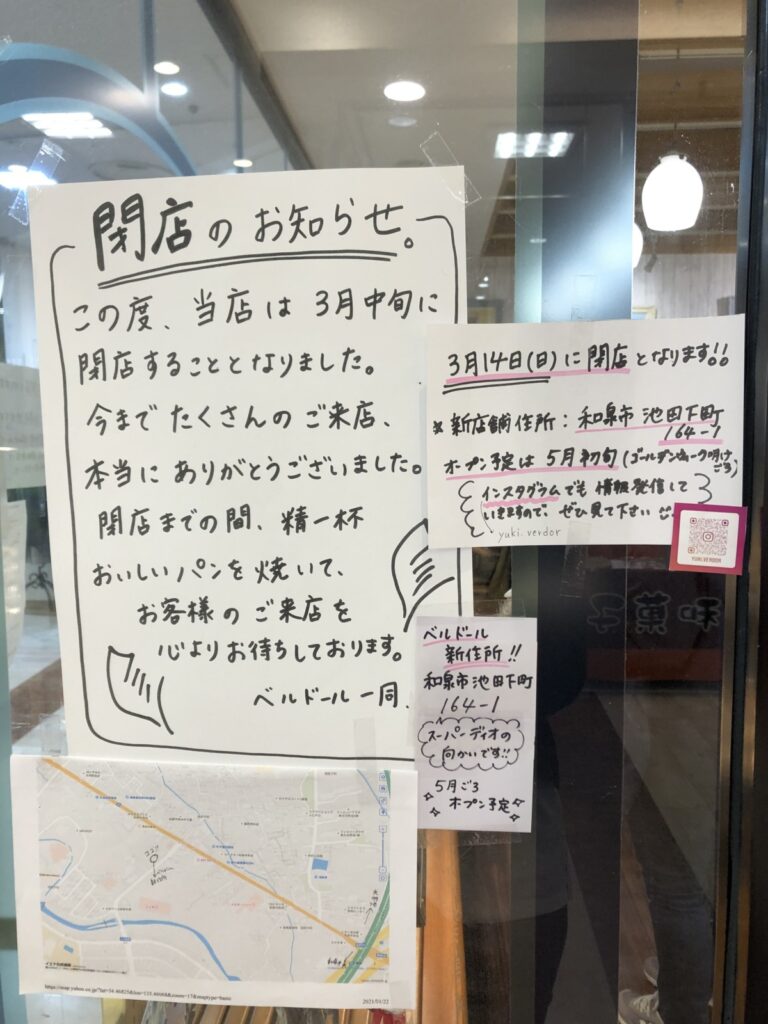 閉店のお知らせ。
この度、当店は3月中旬に
閉店することとなりました。
今までたくさんのご来店、
本当にありがとうございました。
閉店までの間、精一杯
おいしいパンを焼いて、
お客様のご来店を
心よりお待ちしております。
ベルドール一同.
3月14日(日)に閉店となります!!
※新店舗住所：和泉市池田下町
164-1
オープン予定は5月初旬(ゴールデンウィーク明けごろ)
インスタグラムでも情報発信して
いますので、ぜひ見て下さい
yuki.verdor
YUKI.VERDOR
ベルドール
新住所!!
和泉市池田下町
164-1
スーパーディオの
向かいです!!
5月ごろ
オープン予定
ココ
2021/01/22
和菓子